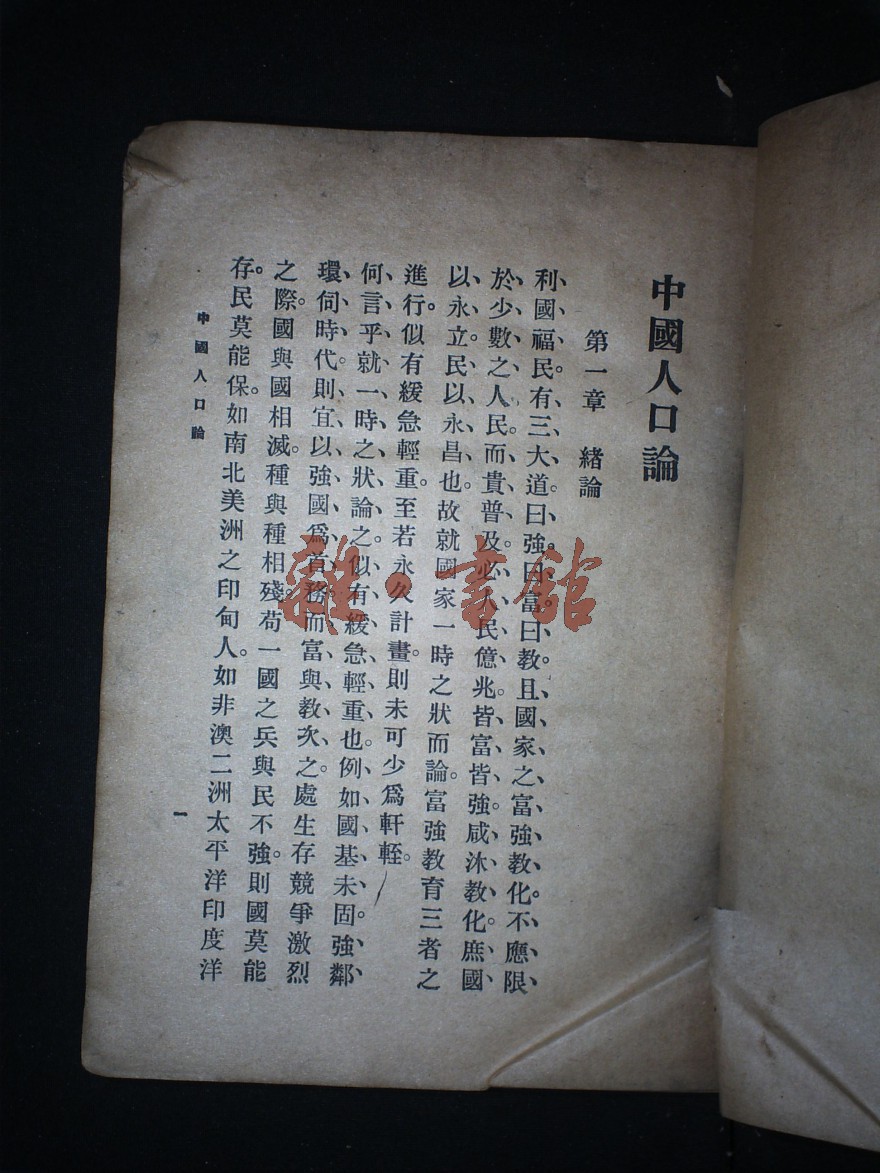 中國人口論
第一章　緒論
利、國、福、民、有、三、大、道、曰、強、曰、富、曰、教。且、國、家、之、富、強、教、化。不、應、限、
於、少、數、之、人、民、而、貴、普、及。必、人、民、億、兆、皆、富、皆、強。咸、沐、教、化。庶、國、
以、永、立。民、以、永、昌、也。故就國家一時之狀而論。富強教育三者之
進行。似有緩急輕重。至若永久計畫。則未可少爲軒輊。
何、言、乎、就、一、時、之、狀、論、之。似、有、緩、急、輕、重、也。例、如、國、基、未、固。強、鄰、
環、伺、時、代。則、宜、以、強、國、爲、首、務。而、富、與、教、次、之。處生存競爭激烈
之際。國與國相滅。種與種相殘。苟一國之兵與民不強。則國莫能
存。民莫能保。如南北美洲之印甸人。如非澳二洲太平洋印度洋
中國人口論
一
雜·書館